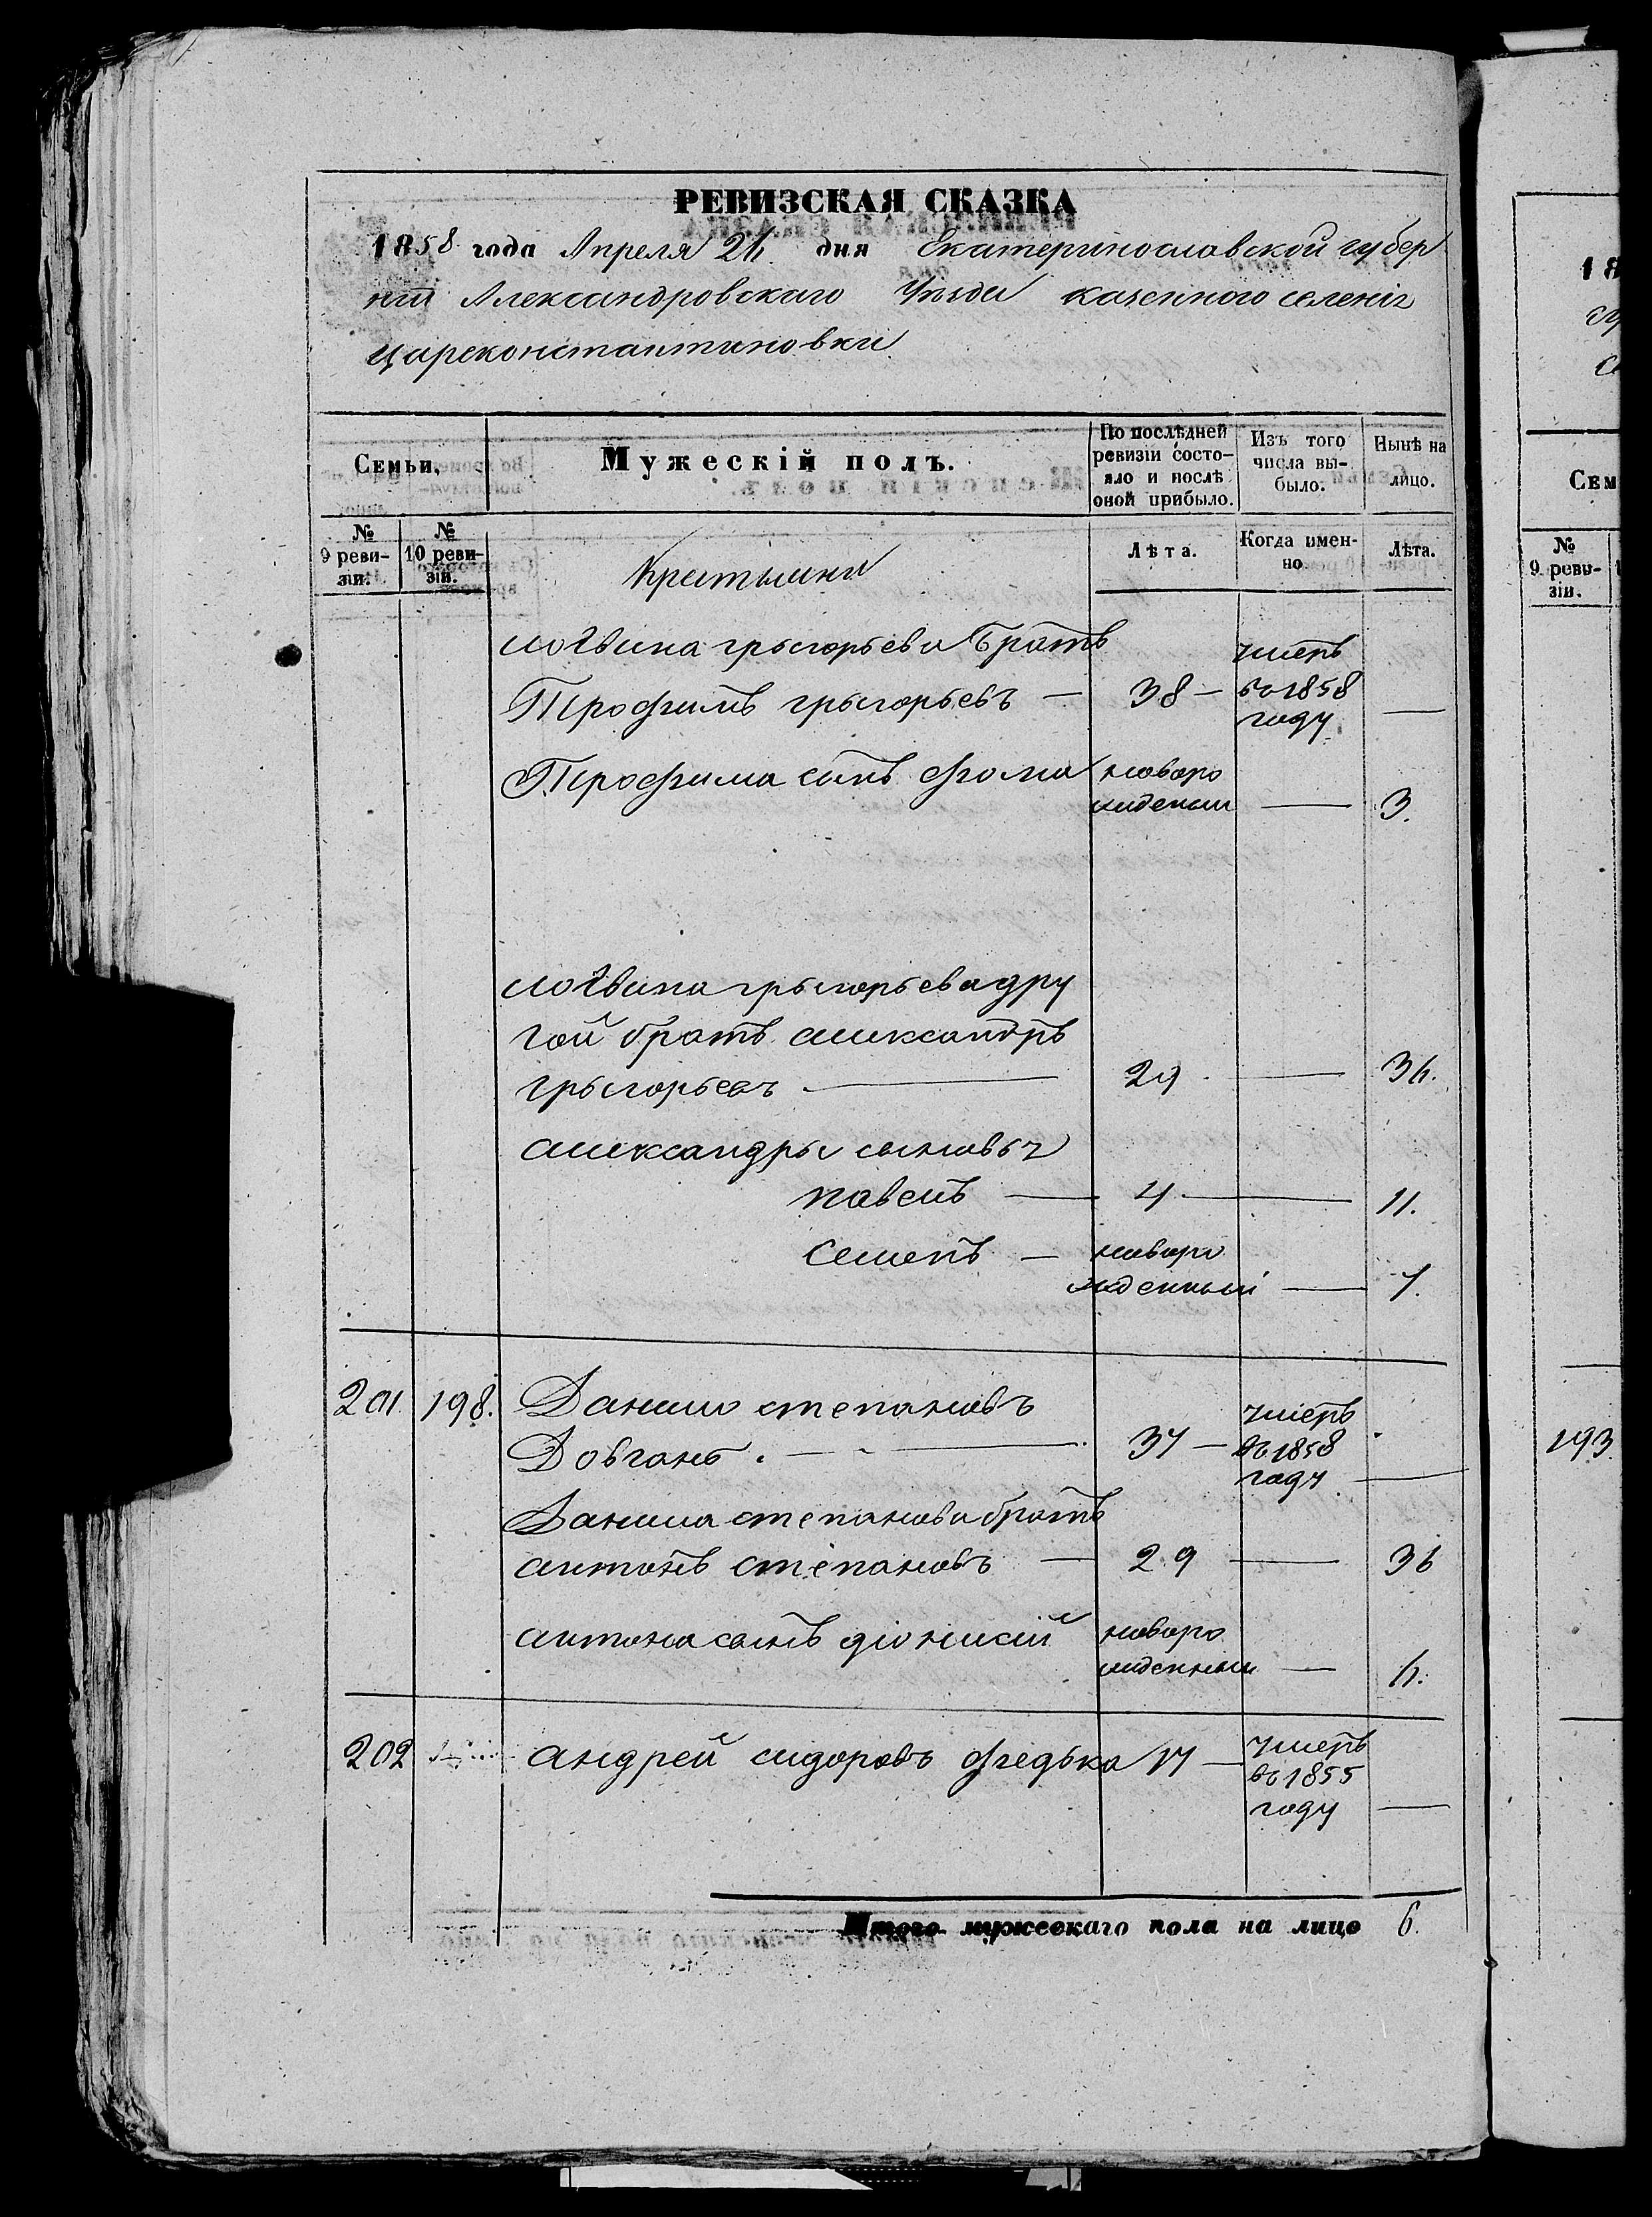 РЕВИЗСКАЯ СКАЗКА
1858 года Апреля 24 дня Екатеринославской губер
нiи Александровского Уѣзда казенного селенiя
Цареконстантиновки
Семьи. Мужескiй полъ. По послѣдней ревизiи состо-яло и послѣ оной прибыло. Изъ того числа вы-было. Нынѣ на лицо.
№ 9 реви-зiи. № 10 реви-зiи. Лѣта. Когда имен-но Лѣта.
Крестьяне
логвина грыгорьева братъ
Трофимъ грыгорьевъ — 38 — умеръ въ 1858 году —
Трофима сынъ фома новоро жденыи — 3.
логвина грыгорьева дру
гой братъ александръ
грыгорьевъ — 29 — 36.
александры сыновья
павелъ — 4 — 11.
Семенъ — новоро жденный — 1.
201 198. Данило степановъ
Довгань. — 37 — умеръ въ 1858 году —
Данила степанова братъ
антонъ степановъ — 29 — 36
антона сынъ дiонисiй новоро жденныи — 4.
202 андрей сидоровъ федько 17 — умеръ въ 1855 году —
Итого мужескаго пола на лицо 6.
18
Сем
№ 9 реви-зiи.
193